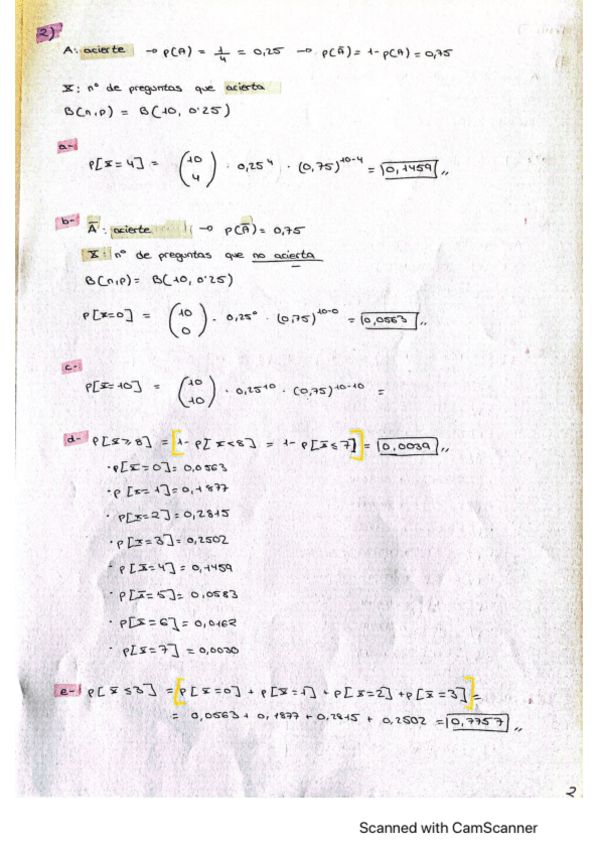 2)
A: acierte → p(A) = 1/4 = 0,25 → p(Ā) = 1 - p(A) = 0,75
X: nº de preguntas que acierta
B(n,p) = B(10, 0'25)
a-
P[X=4] = (10 4) · 0,25⁴ · (0,75)¹⁰⁻⁴ = 0,1459,,
b- Ā: acierte → p(Ā) = 0,75
X: nº de preguntas que no acierta
B(n,p) = B(10, 0'25)
P[X=0] = (10 0) · 0,25⁰ · (0,75)¹⁰⁻⁰ = 0,0563,,
c-
P[X=10] = (10 10) · 0,25¹⁰ · (0,75)¹⁰⁻¹⁰ =
d- P[X≥8] = [1 - P[X<8] = 1 - P[X≤7]] = 0,0039,,
· P[X=0] = 0,0563
· P[X=1] = 0,1877
· P[X=2] = 0,2815
· P[X=3] = 0,2502
· P[X=4] = 0,1459
· P[X=5] = 0,0583
· P[X=6] = 0,0162
· P[X=7] = 0,0030
e- P[X≤3] = [P[X=0] + P[X=1] + P[X=2] + P[X=3]] =
= 0,0563 + 0,1877 + 0,2815 + 0,2502 = 0,7757,,
2
Scanned with CamScanner